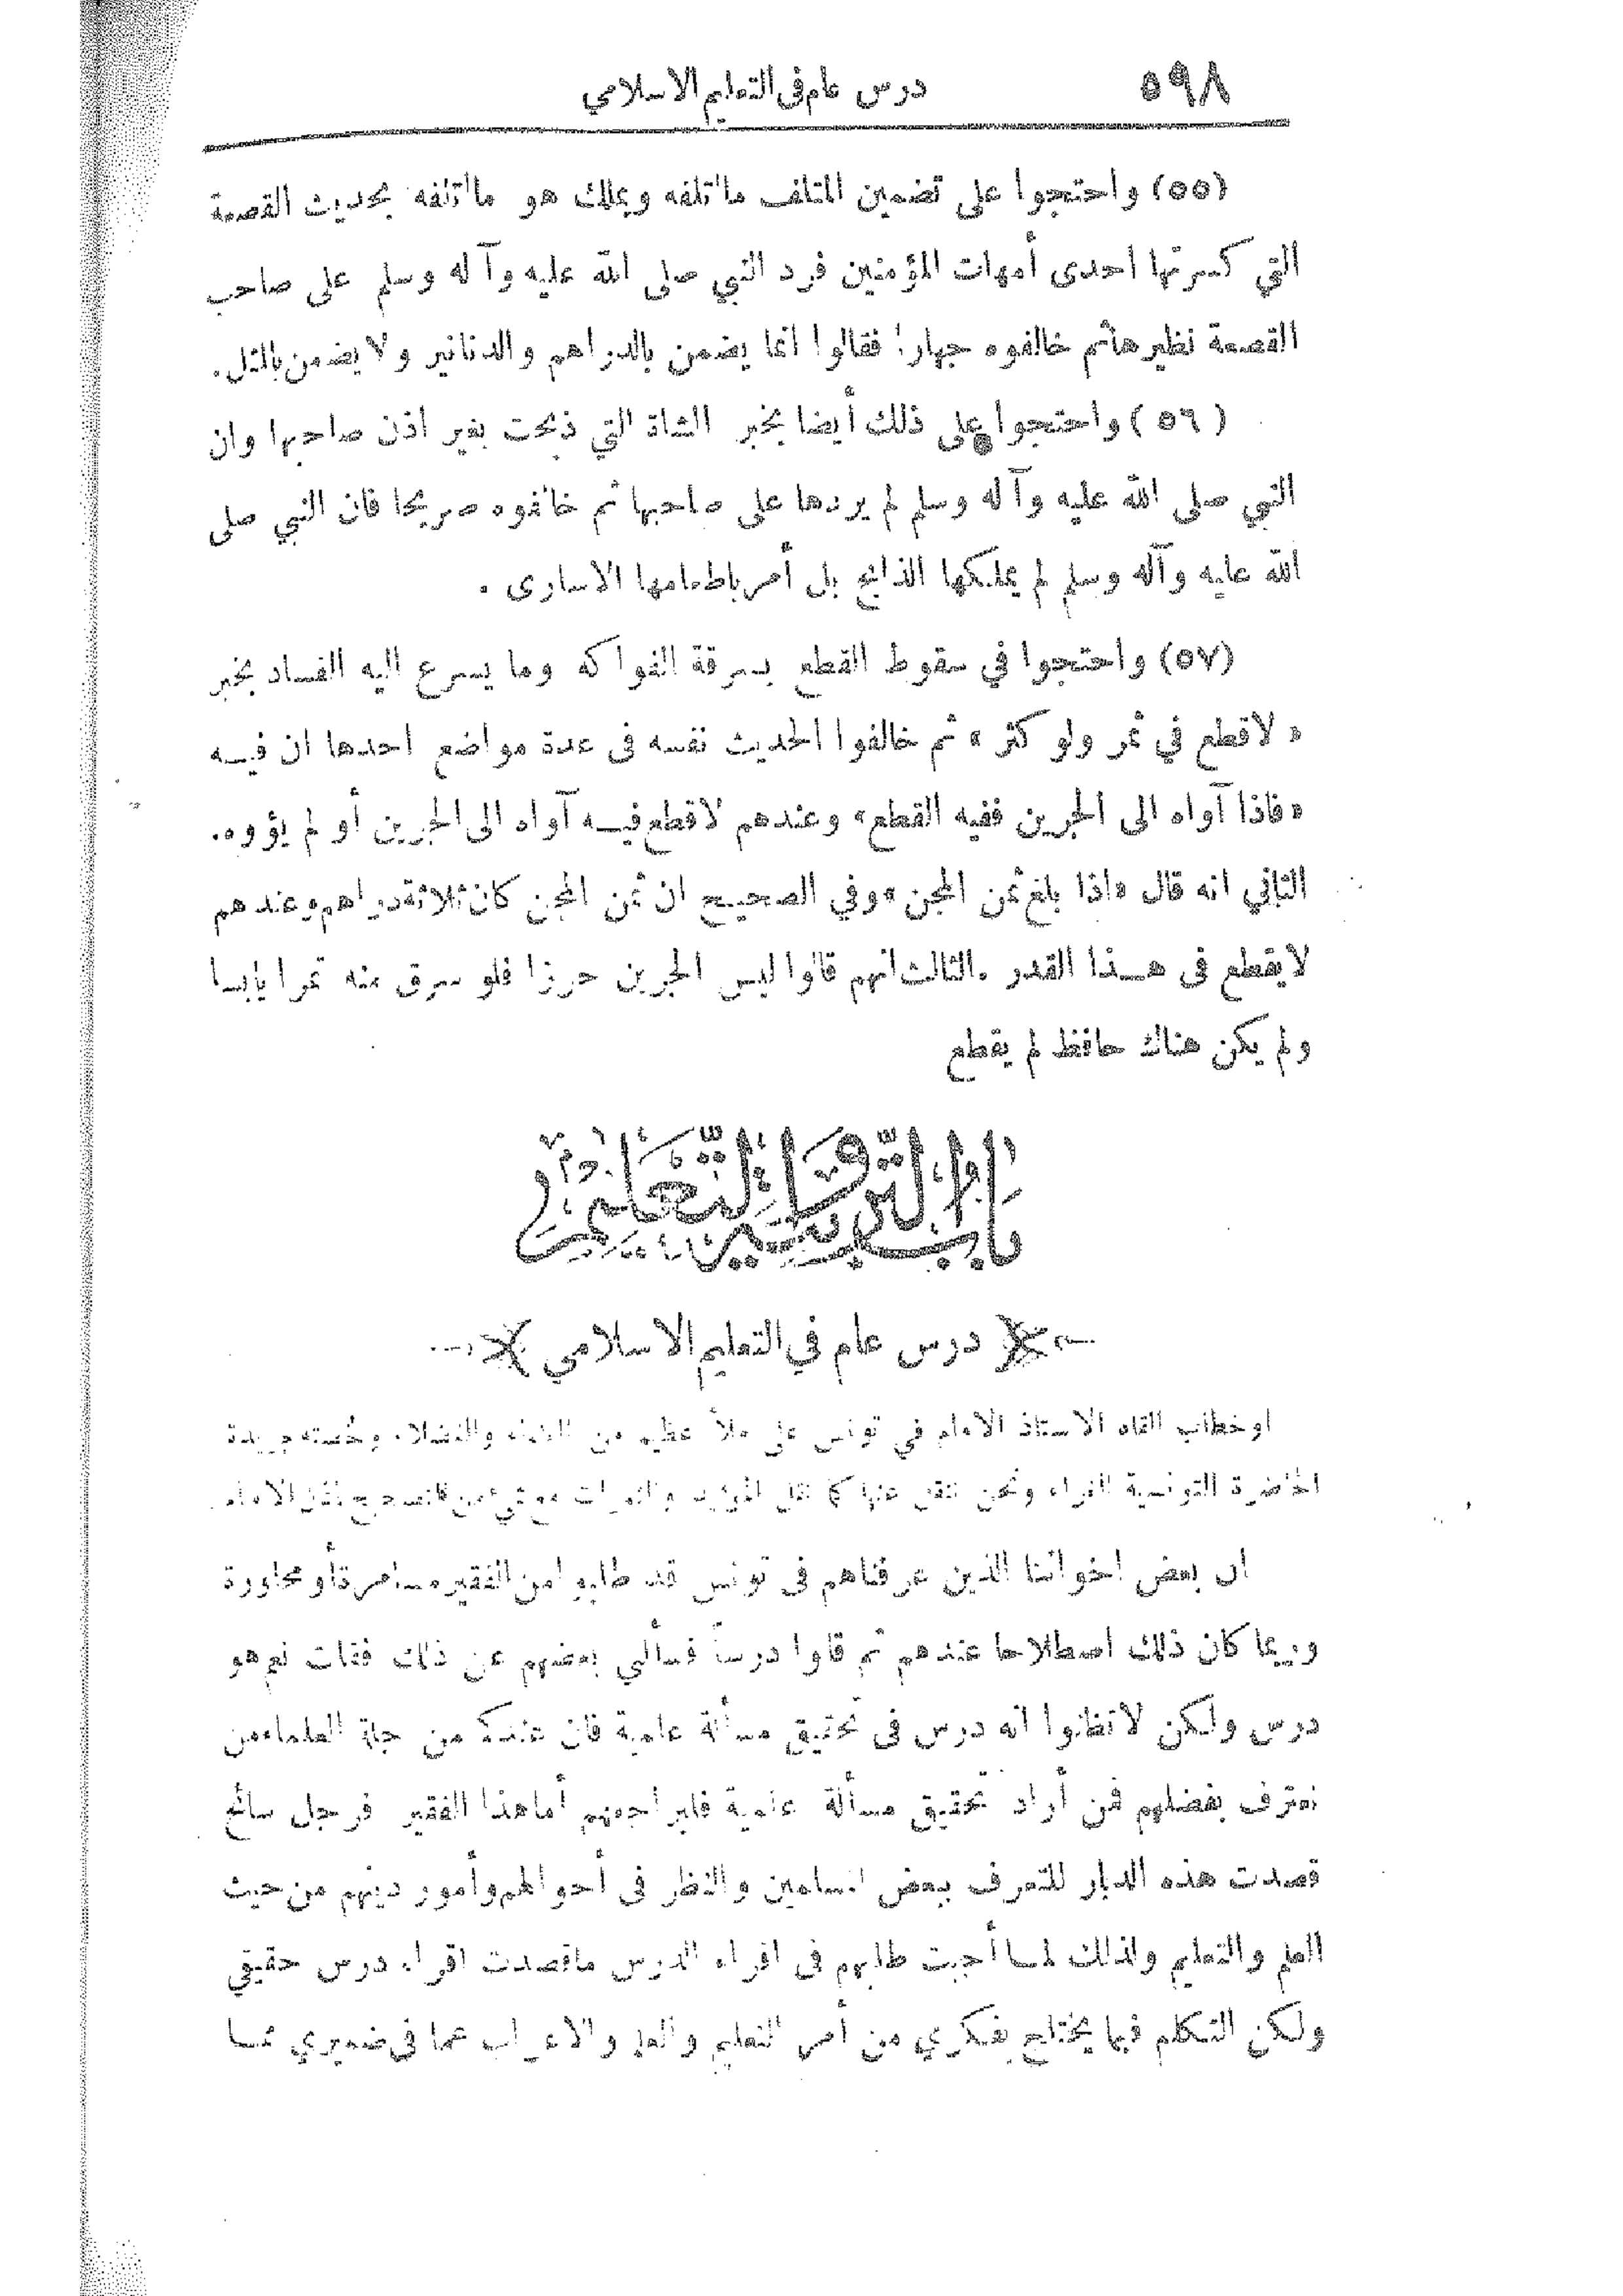 ٥٩٨ درس عام في التعليم الاسلامي
(٥٥) واحتجوا على تضمين المتلف ما أتلفه ويملك هو ما أتلفه بحديث القصعة
التي كسرتها احدى أمهات المؤمنين فرد النبي صلى الله عليه وآله وسلم على صاحب
القصعة نظيرها ثم خالفوه جهارا فقالوا انما يضمن بالدراهم والدنانير ولا يضمن بالمثل.
(٥٦) واحتجوا على ذلك أيضا بخبر الشاة التي ذبحت بغير اذن صاحبها وان
النبي صلى الله عليه وآله وسلم لم يردها على صاحبها ثم خالفوه صريحا فان النبي صلى
الله عليه وآله وسلم لم يملكها الذابح بل أمر باطعامها الاسارى .
(٥٧) واحتجوا في سقوط القطع بسرقة الفواكه وما يسرع اليه الفساد بخبر
« لا قطع في ثمر ولو كثر » ثم خالفوا الحديث نفسه في عدة مواضع احدها ان فيه
« فاذا آواه الى الجرين ففيه القطع» وعندهم لا قطع فيه آواه الى الجرين أو لم يؤوه.
الثاني انه قال «اذا بلغ ثمن المجن» وفي الصحيح ان ثمن المجن كان ثلاثة دراهم وعندهم
لا يقطع في هذا القدر . الثالث انهم قالوا ليس الجرين حرزا فلو سرق منه تمرا يابسا
ولم يكن هناك حافظ لم يقطع
باب التربية والتعليم
درس عام في التعليم الاسلامي
او خطاب القاه الاستاذ الامام في تونس على ملأ عظيم من العلماء والفضلاء ولخصته جريدة
الحاضرة التونسية الغراء ونحن ننقل عنها كما نقل المؤيد والثمرات مع شيء من التصحيح لنقل الامام
ان بعض اخواننا الذين عرفناهم في تونس قد طلبوا من الفقير مسامرة أو محاورة
وربما كان ذلك اصطلاحا عندهم ثم قالوا درساً فسألني بعضهم عن ذلك فقلت نعم هو
درس ولكن لا تظنوا انه درس في تحقيق مسألة علمية فان عندكم من جلة العلماء من
نعترف بفضلهم فمن أراد تحقيق مسألة علمية فليراجعهم أما هذا الفقير فرجل سائح
قصدت هذه الديار للتعرف ببعض المسلمين والنظر في أحوالهم وأمور دينهم من حيث
العلم والتعليم ولذلك لما أجبت طلبهم في اقراء الدرس ما قصدت اقراء درس حقيقي
ولكن التكلم فيما يختلج بفكري من أمر التعليم والعلم والاعراب عما في ضميري مما